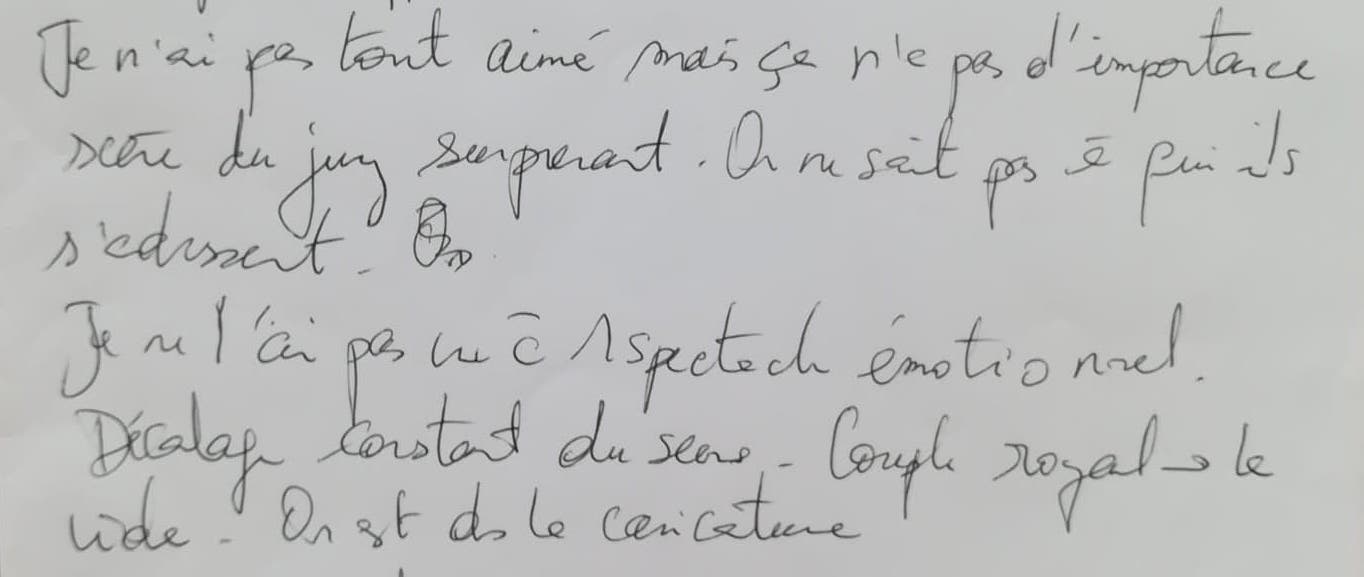 Je n'ai pas tout aimé mais ça n'e pas d'importance
scène du jury surprenant. On ne sait pas à qui ils
s'adressent.
Je ne l'ai pas vu à 1 spectacle émotionnel.
Décalage constant du sens - Couple royal → le
vide - On est ds la caricature